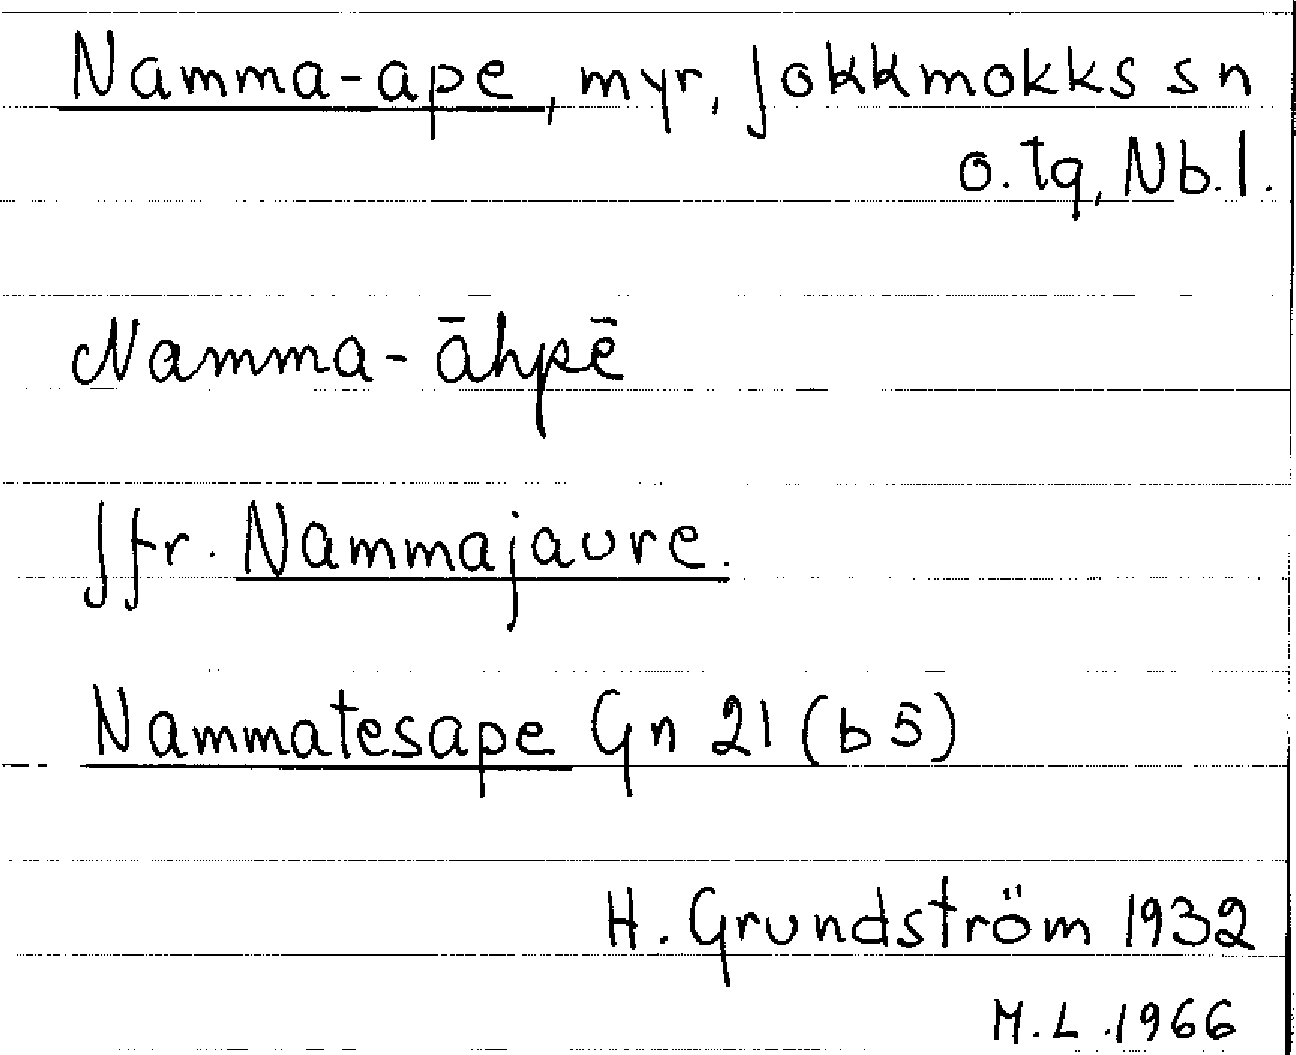 Namma-ape, myr, Jokkmokks sn
o. tg, Nb. l.
Namma-āhpē
Jfr. Nammajaure.
Nammatesape Gn 21 (b5)
H. Grundström 1932
M. L. 1966